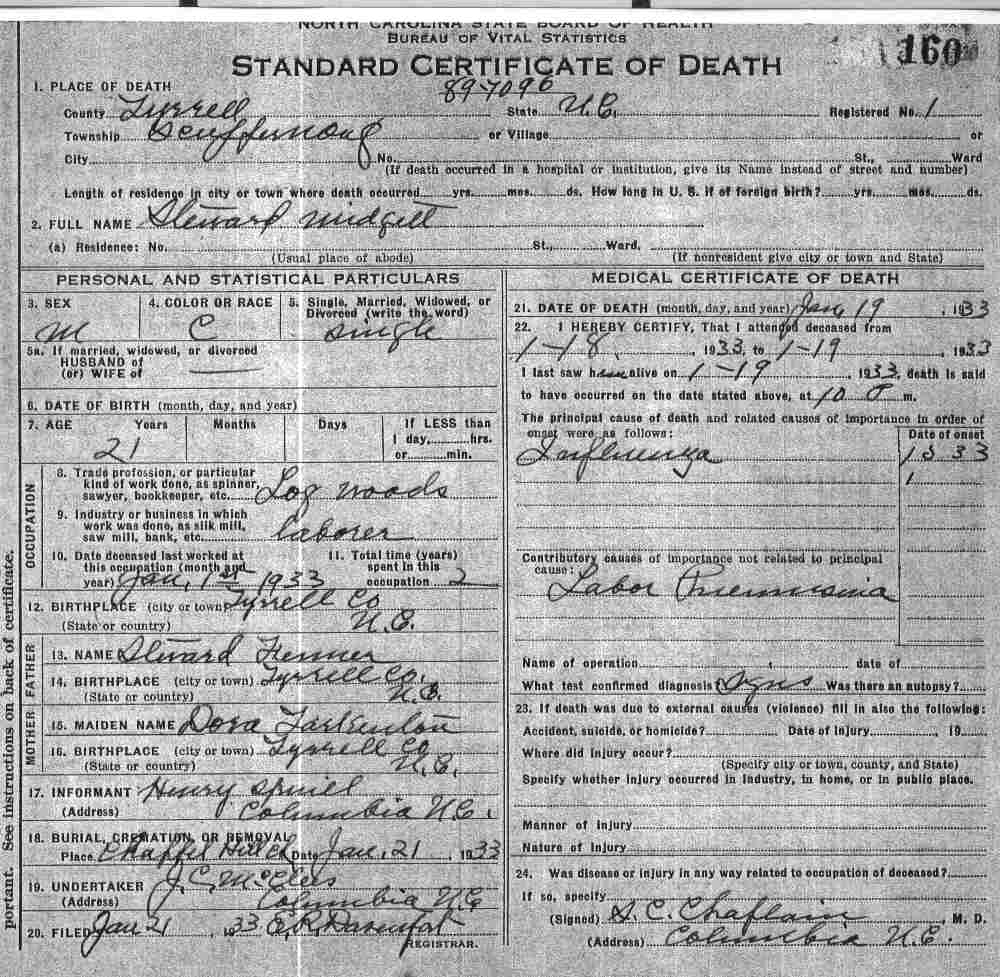 NORTH CAROLINA STATE BOARD OF HEALTH
BUREAU OF VITAL STATISTICS
160
STANDARD CERTIFICATE OF DEATH
1. PLACE OF DEATH 89-7096
County Tyrrell State N.C. Registered No. 1
Township Scuppernong or Village or
City No. St., Ward
(If death occurred in a hospital or institution, give its Name instead of street and number)
Length of residence in city or town where death occurred yrs. mos. ds. How long in U. S. if of foreign birth? yrs. mos. ds.
2. FULL NAME Steward midgett
(a) Residence: No. St., Ward.
(Usual place of abode) (If nonresident give city or town and State)
PERSONAL AND STATISTICAL PARTICULARS
3. SEX 4. COLOR OR RACE 5. Single, Married, Widowed, or
Divorced (write the word)
M C single
5a. If married, widowed, or divorced
HUSBAND of
(or) WIFE of
6. DATE OF BIRTH (month, day, and year)
7. AGE Years Months Days If LESS than
1 day, hrs.
21 or min.
OCCUPATION
8. Trade profession, or particular
kind of work done, as spinner,
sawyer, bookkeeper, etc. Log woods
9. Industry or business in which
work was done, as silk mill,
saw mill, bank, etc. laborer
10. Date deceased last worked at
this occupation (month and
year) Jan, 1st 1933
11. Total time (years)
spent in this
occupation 2
12. BIRTHPLACE (city or town) Tyrrell Co
(State or country) N.C.
FATHER
13. NAME Steward
14. BIRTHPLACE (city or town) Tyrrell Co.
(State or country) N.C.
MOTHER
15. MAIDEN NAME Dora Tarkenton
16. BIRTHPLACE (city or town) Tyrrell Co
(State or country) N.C.
17. INFORMANT Henry
(Address) Columbia N.C.
18. BURIAL, CREMATION, OR REMOVAL
Place Date Jan. 21, 1933
19. UNDERTAKER J. C.
(Address) Columbia N.C.
20. FILED Jan 21, 1933 C. R. Davenport
REGISTRAR.
portant. See instructions on back of certificate.
MEDICAL CERTIFICATE OF DEATH
21. DATE OF DEATH (month, day, and year) Jan 19, 1933
22. I HEREBY CERTIFY, That I attended deceased from
1-18, 1933, to 1-19, 1933
I last saw him alive on 1-19, 1933, death is said
to have occurred on the date stated above, at 10 P m.
The principal cause of death and related causes of importance in order of
onset were as follows: Date of onset
Influenza 1933
1
Contributory causes of importance not related to principal
cause:
Labor Pneumonia
Name of operation date of
What test confirmed diagnosis Was there an autopsy?
23. If death was due to external causes (violence) fill in also the following:
Accident, suicide, or homicide? Date of injury, 19
Where did injury occur?
(Specify city or town, county, and State)
Specify whether injury occurred in industry, in home, or in public place.
Manner of injury
Nature of injury
24. Was disease or injury in any way related to occupation of deceased?
If so, specify
(Signed) S. C. Chaplain, M. D.
(Address) Columbia N.C.